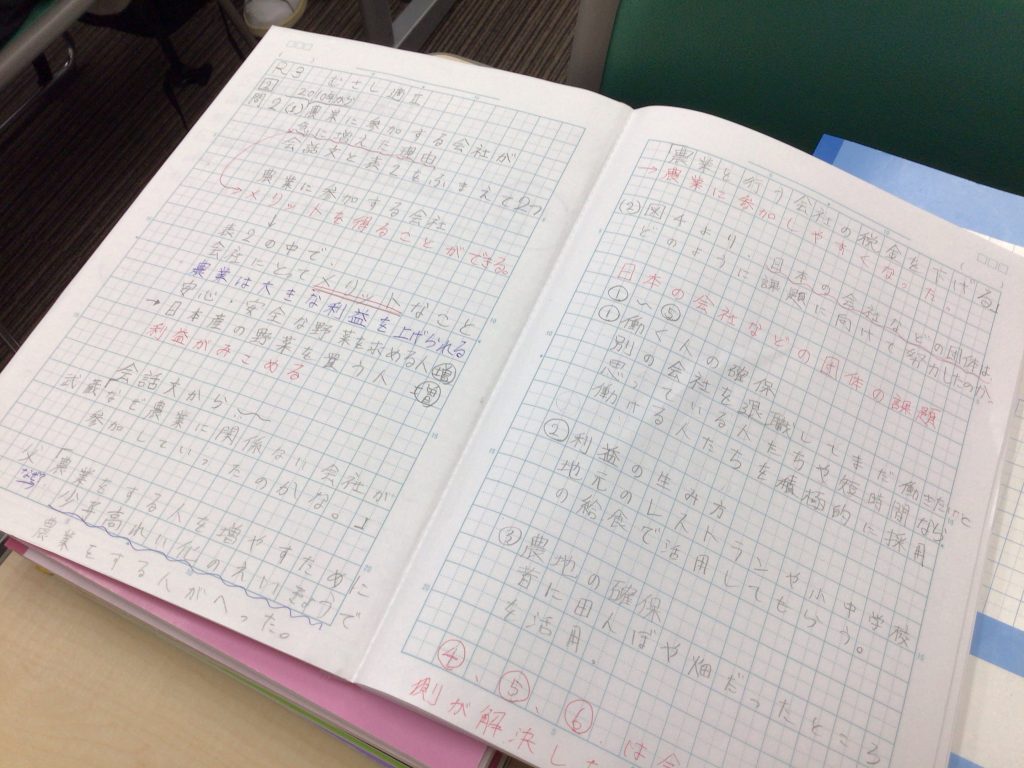 23 むさし適Ⅱ
問2 (2) 農業に参加する会社が
急に増えた理由
会話文と表2をふまえて2つ
農業に参加する会社
→メリットを得ることができる。
↓
表2の中で、
会社にとってメリットなこと
農業は大きな利益を上げられる
安心・安全な野菜を求める人 増
→日本産の野菜を買う人 増
利益がみこめる
会話文から
武蔵「なぜ農業に関係ない会社が
参加していったのかな。」
父 農業をする人を増やすために
少子高れい化のえいきょうで
農業をする人がへった。
農業を行う会社の税金を下げる」
→農業に参加しやすくなった。
(2) 図4より、日本の会社などの団体は
どのように課題に向けて
日本の会社などの団体の課題
①〜⑤
①働く人の確保
別の会社を退職してまだ働きたいと
思っている人たちや短時間なら
働ける人たちを積極的に採用
②利益の生み方
地元のレストランや小中学校
の給食で活用してもらう。
③農地の確保
昔に田んぼや畑だったところ
を活用。
④、⑤、⑥は会
側が解決し